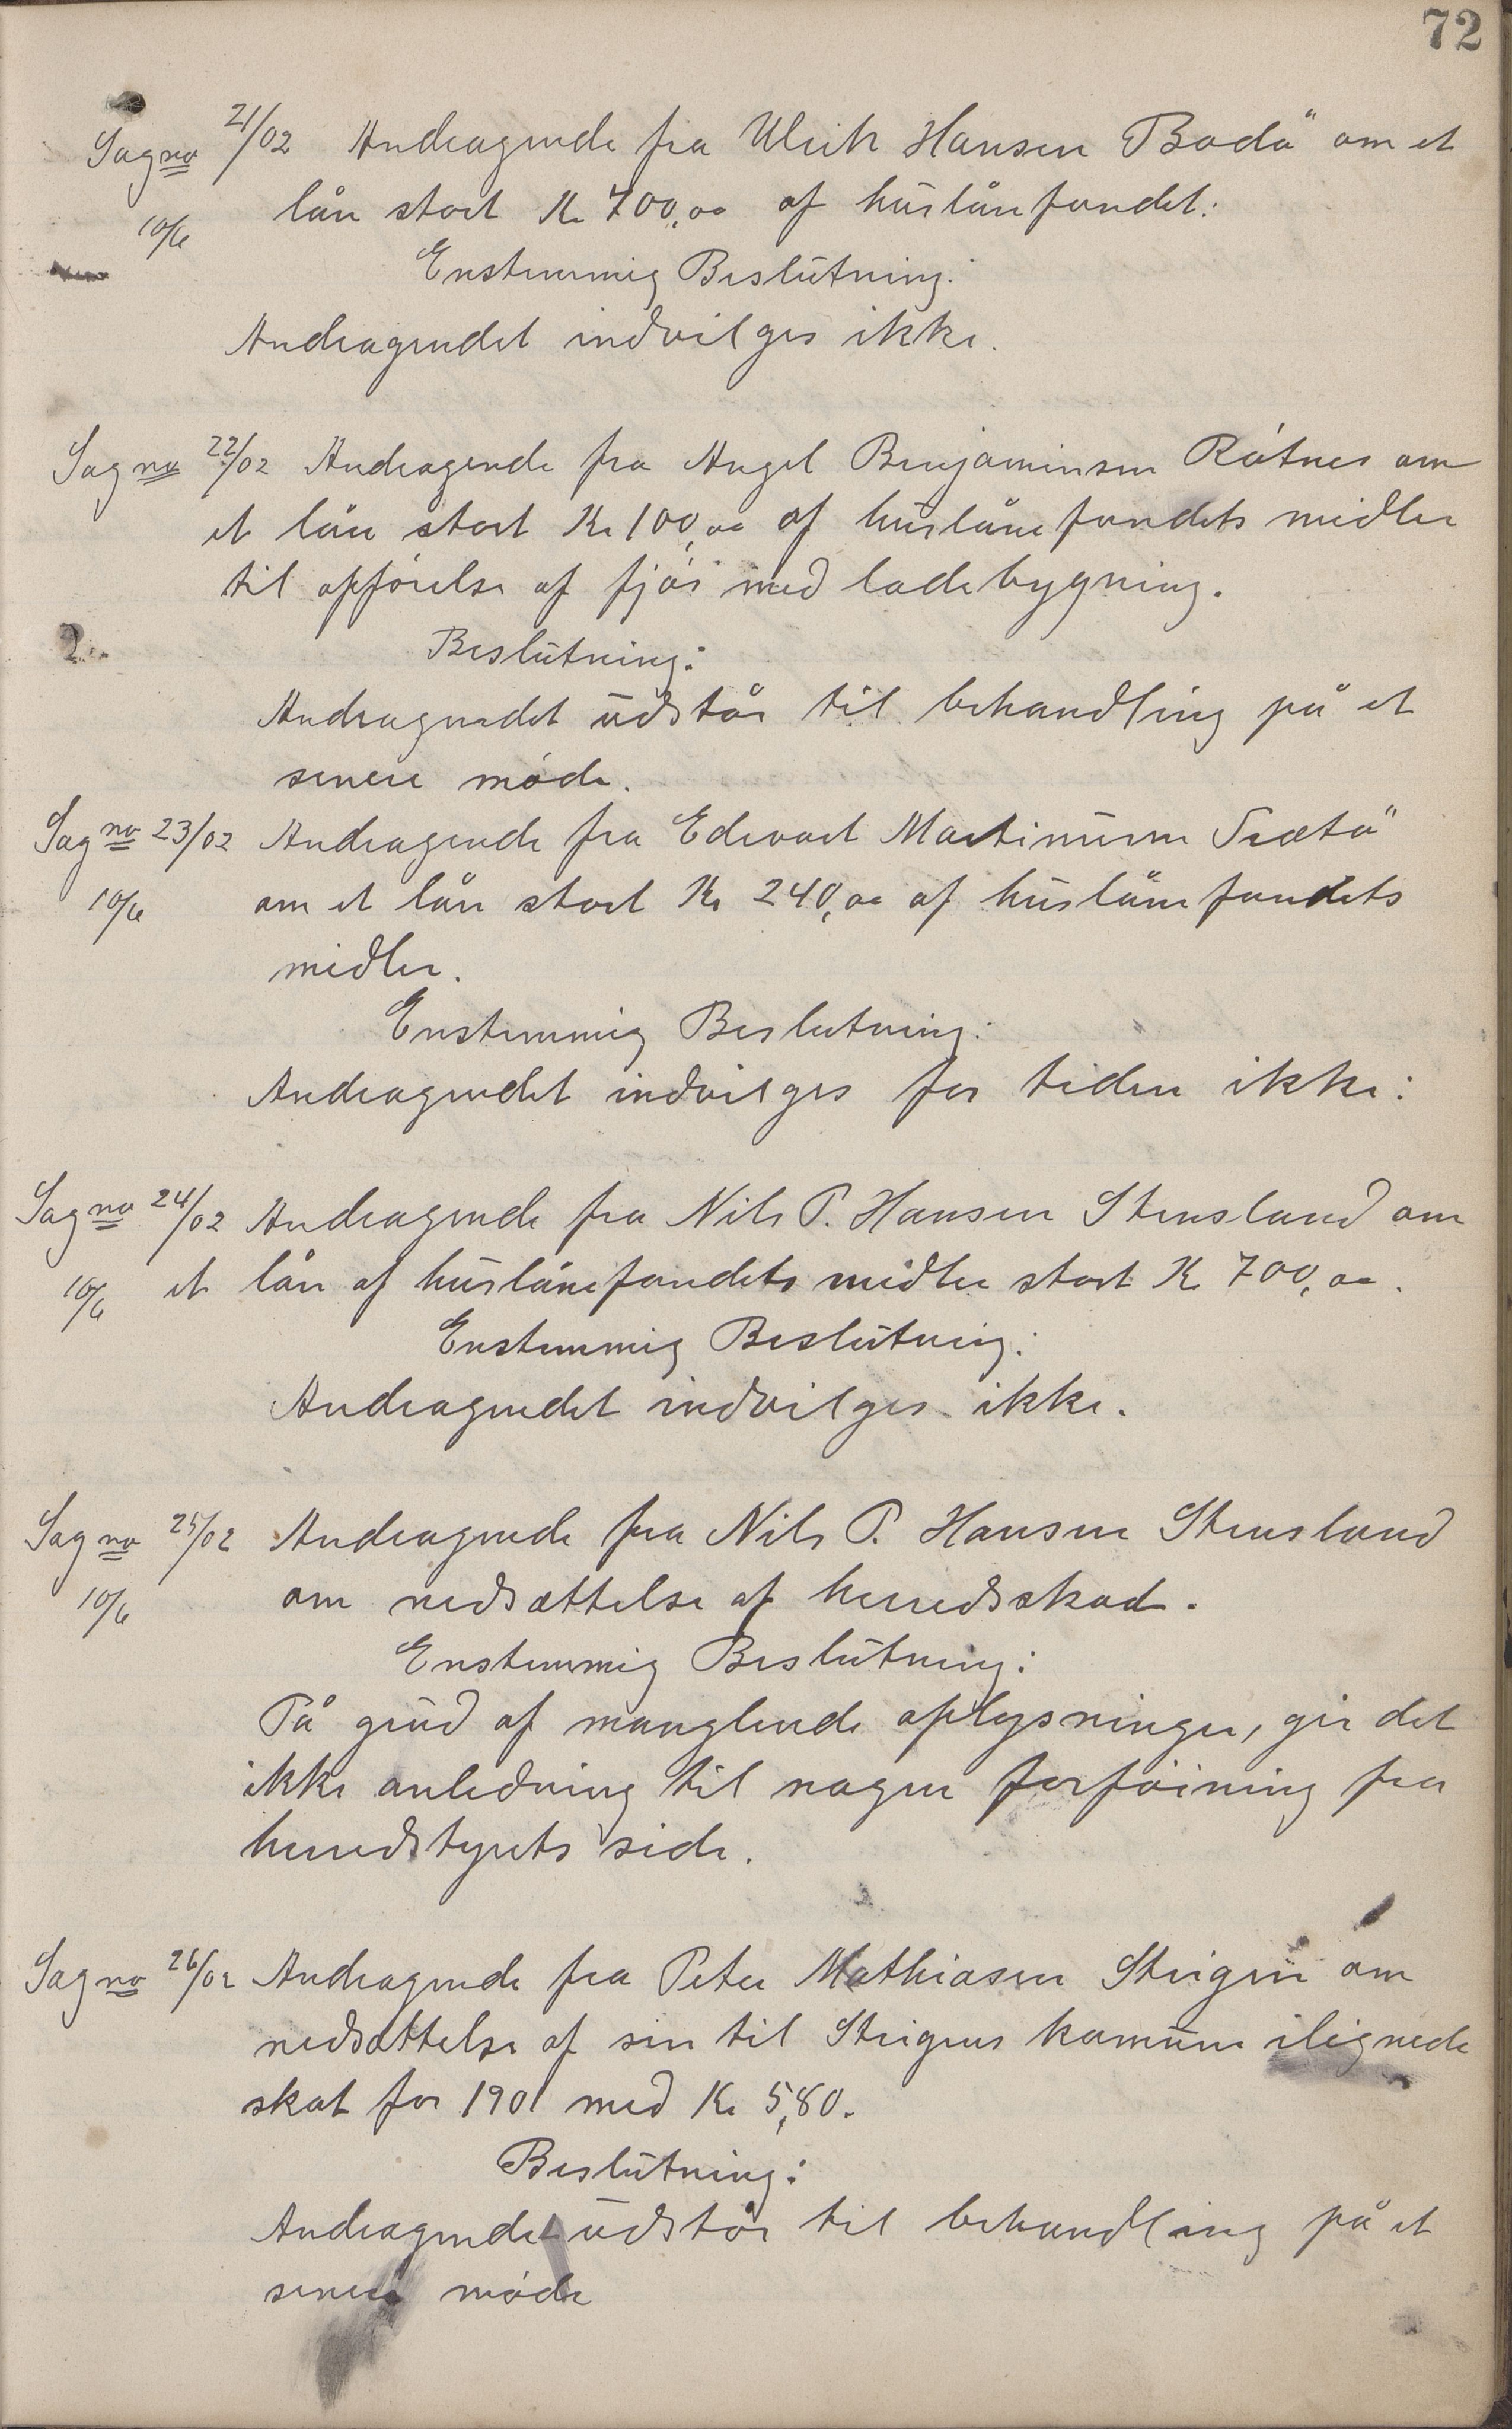 72
Sag no 21/02 Andragende fra Ulrik Hansen Bodö om et
10/6 lån stort Kr 700,00 af huslånefondet:
Enstemmig Beslutning:
Andragendet indvilges ikke.
Sag no 22/02 Andragende fra Angel Benjaminsen Råtnes om
et lån stort Kr 100,00 af huslånefondets midler
til opförelse af fjös med ladebygning.
Beslutning:
Andragendet udstår til behandling på et
senere möde.
Sag no 23/02 Andragende fra Edvart Martinusen Sætö
10/6 om et lån stort Kr 240,00 af huslånefondets
midler.
Enstemmig Beslutning:
Andragendet indvilges for tiden ikke:
Sag no 24/02 Andragende fra Nils P. Hansen Stensland om
10/6 et lån af huslånefondets midler stort Kr 700,00.
Enstemmig Beslutning:
Andragendet indvilges ikke.
Sag no 25/02 Andragende fra Nils P. Hansen Stensland
10/6 om nedsættelse af herredsskad.
Enstemmig Beslutning:
På grund af manglende oplysninger, gir det
ikke anledning til nogen forföining fra
herredstyrets side.
Sag no 26/02 Andragende fra Peter Mathiasen Steigen om
nedsættelse af sin til Steigens komune ilignede
skat for 1901 med Kr 5,80.
Beslutning:
Andragendet udstår til behandling på et
senere möde